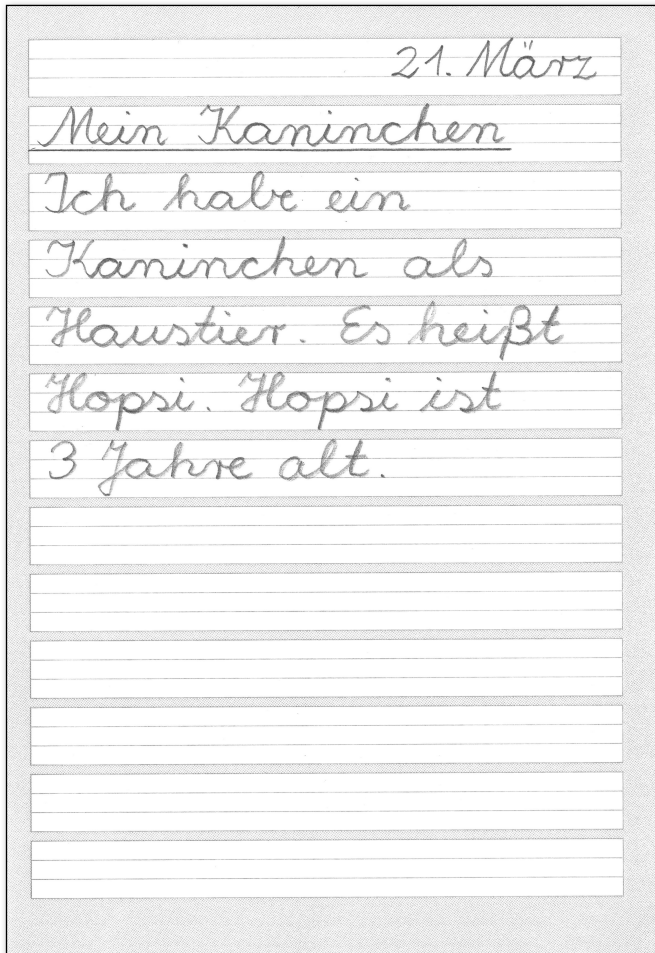 21. März
Mein Kaninchen
Ich habe ein
Kaninchen als
Haustier. Es heißt
Hopsi. Hopsi ist
3 Jahre alt.